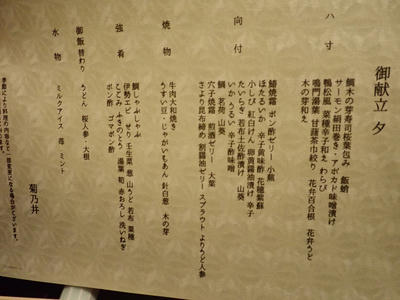 御献立 夕
八寸
鯛木の芽寿司桜葉包み 飯蛸
サーモン絹田巻き・アボカド味噌漬け
鴨松風 菜種辛子和え わらび
鳴門湯葉 甘藷茶巾絞り 花弁百合根 花弁うど
木の芽和え
向付
鰆焼霜 ポン酢ゼリー 小蕪
ほたるいか 辛子黄味酢 花穂紫蘇
小しび 紅白けん 卵黄醤油漬け 辛子
たいらぎ 若布 土佐酢漬け 山葵
いか うるい 辛子酢味噌
鯛 茗荷 山葵
穴子焼霜 煎酒ゼリー 大葉
さより昆布締め 割醤油ゼリー スプラウト よりうど人参
焼物
牛肉大和焼き
うすい豆・じゃがいもあん 針白葱 木の芽
強肴
鯛しゃぶしゃぶ
伊勢エビ 湯葉 壬生菜 葱 山うど 若布 菜種
こごみ ふきのとう 筍 赤おろし 洗いねぎ
ポン酢 ゴマポン酢
御飯替わり うどん 桜人参・大根
水物 ミルクアイス 苺 ミント
菊乃井
季節により料理の内容など、
一部変更になる場合がございます。